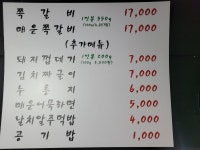 쪽갈비 1인분 550g 17,000
매운쪽갈비 17,000
(추가메뉴)
돼지껍데기 1인분 200g 7,000
김치짜글이 7,000
누룽지 6,000
매운어묵하면 5,000
날치알주먹밥 4,000
공기밥 1,000